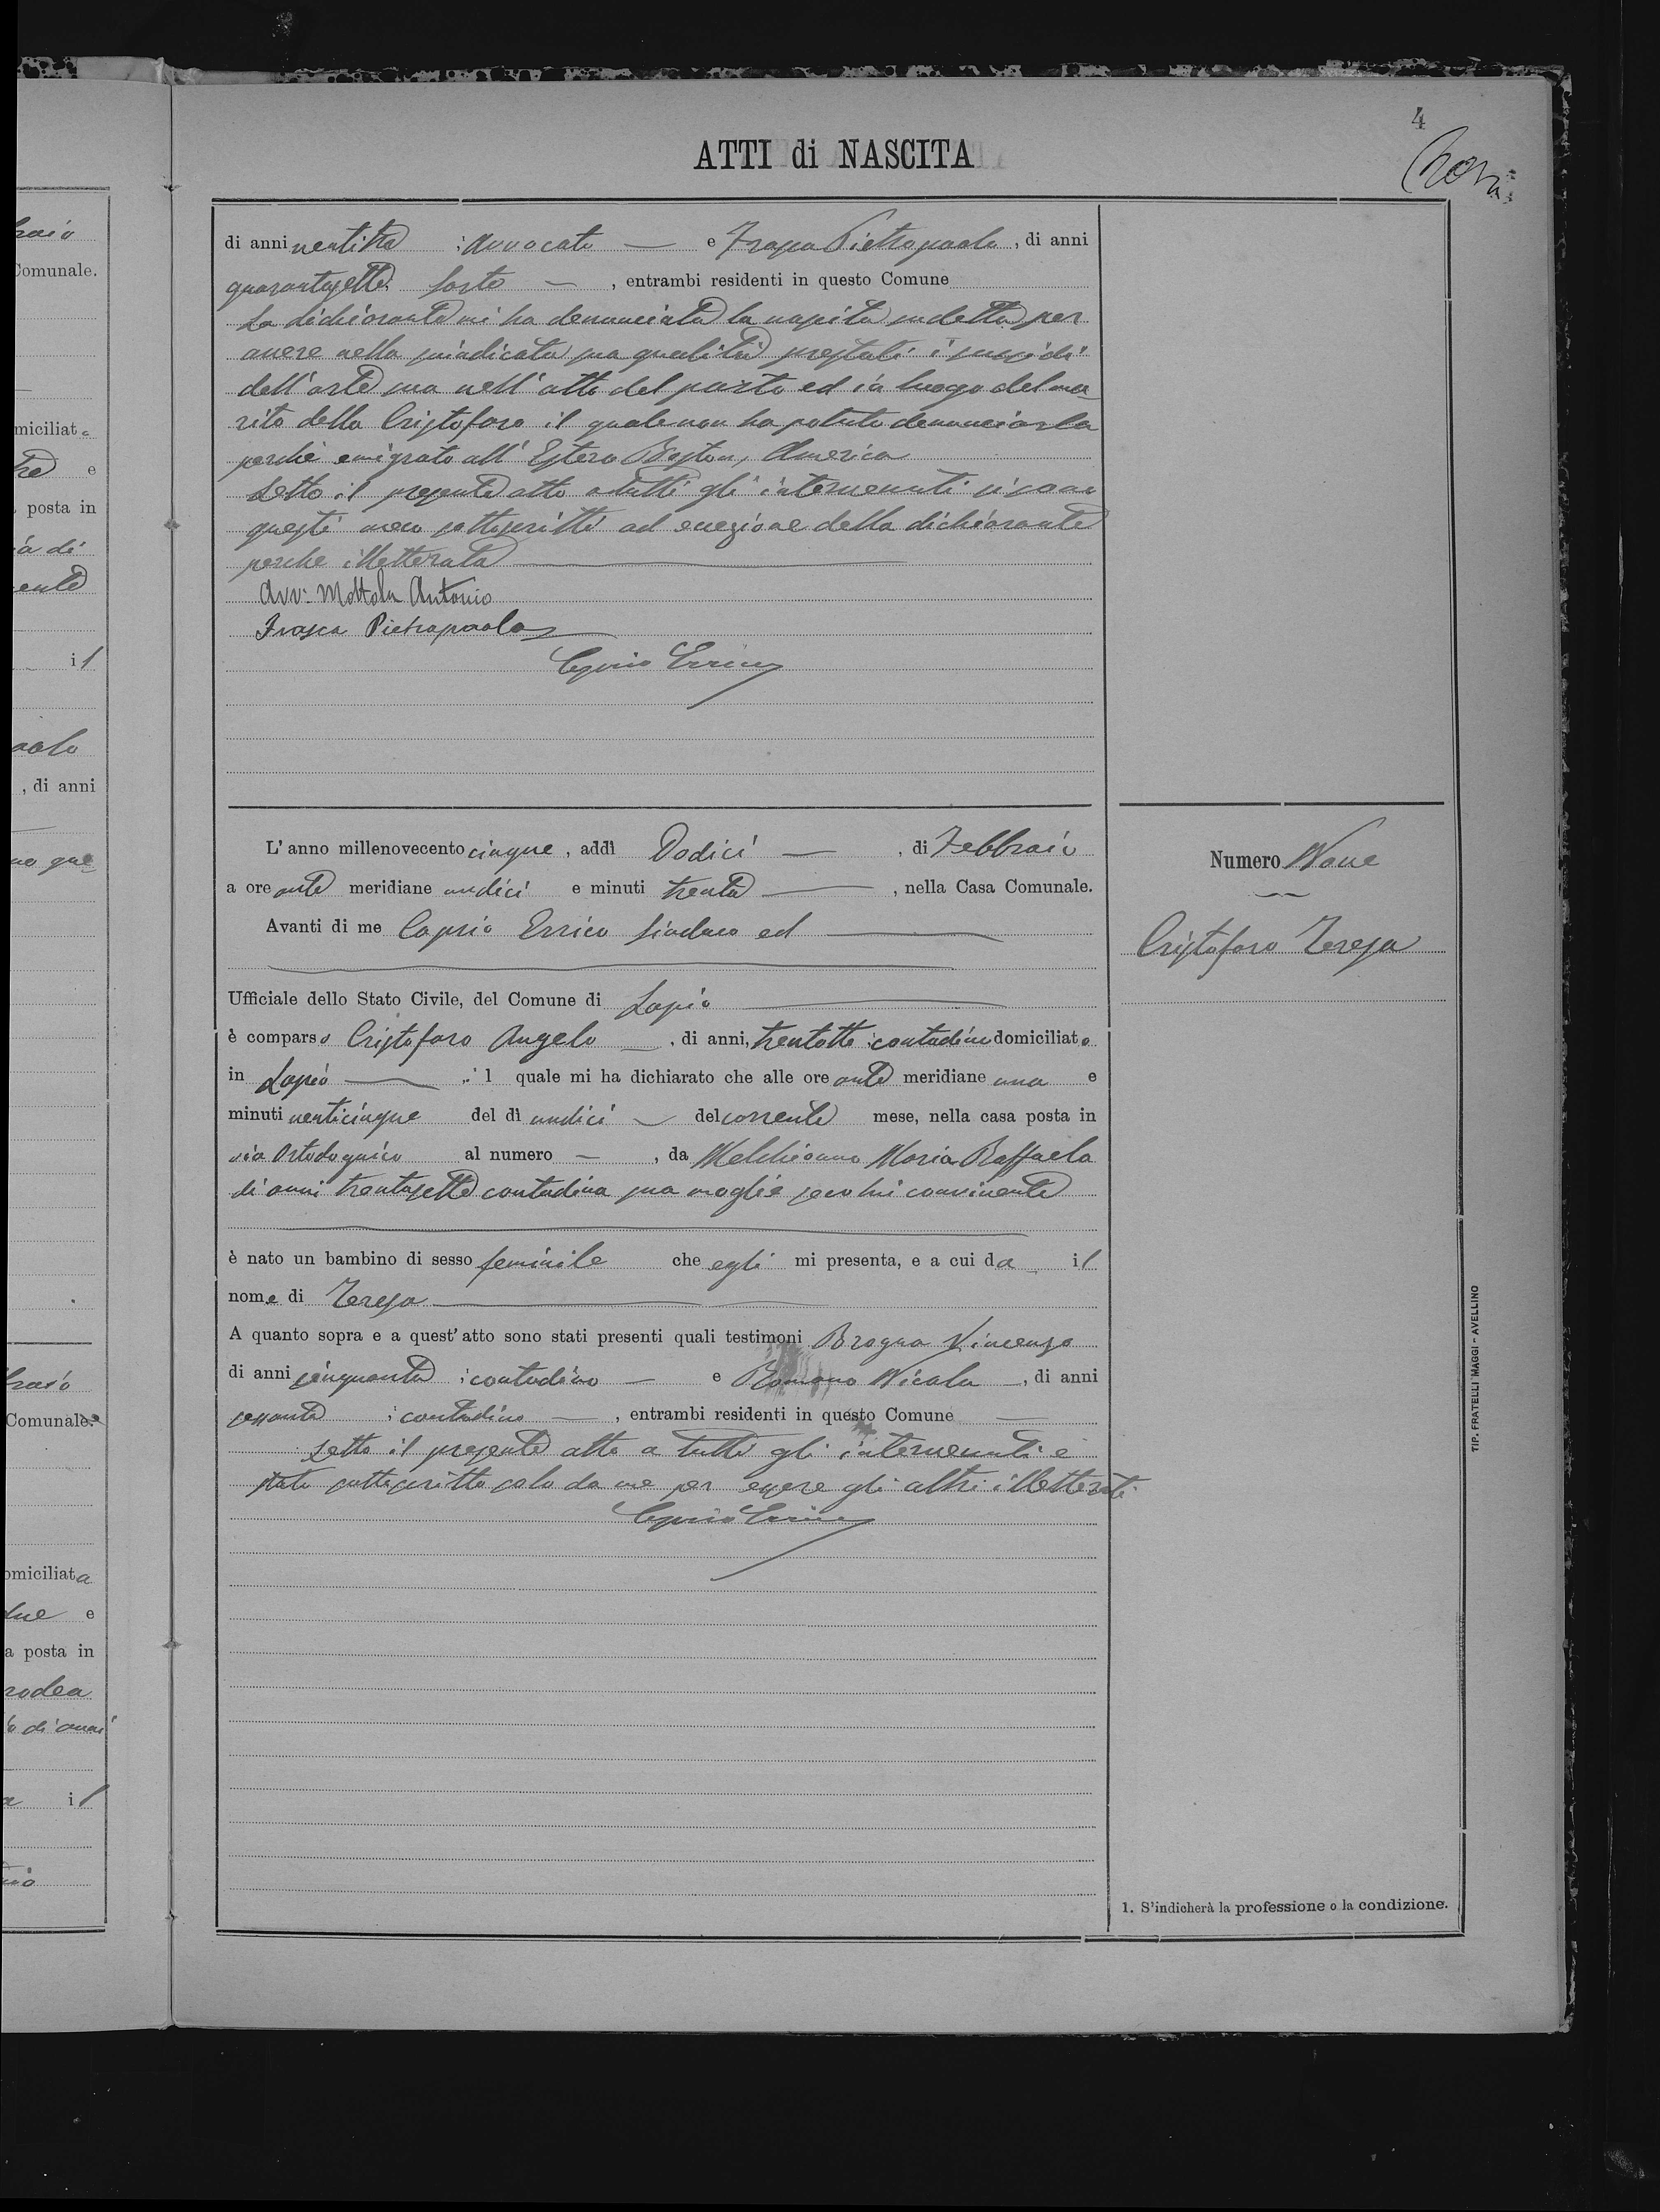 4
ATTI di NASCITA
di anni ventitre : Avvocato — e Frasca Pietropaolo, di anni
quarantasette sarto — , entrambi residenti in questo Comune
La dichiarante mi ha denunciata la nascita sudetta per
avere nella suindicata sua qualità prestati i sussidi
dell'arte sua nell'atto del parto ed in luogo del ma-
rito della Cristofaro il quale non ha potuto denunciarla
perchè emigrato all'Estero Boston, America
Letto il presente atto a tutti gli intervenuti si sono
questi meco sottoscritti ad eccezione della dichiarante
perche illetterata
Avv: Mottola Antonio
Frasca Pietropaolo
Caprio Errico
L'anno millenovecento cinque, addì Dodici — , di Febbraio
a ore ante meridiane undici e minuti trenta — , nella Casa Comunale.
Avanti di me Caprio Errico Sindaco ed
Ufficiale dello Stato Civile, del Comune di Lapio
è comparso Cristofaro Angelo — , di anni, trentotto : contadino domiciliato
in Lapio — il quale mi ha dichiarato che alle ore ante meridiane una e
minuti venticinque del dì undici — del corrente mese, nella casa posta in
via Ortodoguico al numero — , da Melchionna Maria Raffaela
di anni trentasette contadina sua moglie seco lui convivente
è nato un bambino di sesso feminile che egli mi presenta, e a cui da il
nome di Teresa
A quanto sopra e a quest'atto sono stati presenti quali testimoni Brogna Vincenzo
di anni cinquanta : contadino — e Romano Nicola —, di anni
sessanta : contadino — , entrambi residenti in questo Comune —
Letto il presente atto a tutti gli intervenuti è
stato sottoscritto solo da me per essere gli altri illetterati
Caprio Errico
Numero Nove
Cristofaro Teresa
1. S'indicherà la professione o la condizione.
TIP. FRATELLI MAGGI - AVELLINO
raio
Comunale.
miciliata
tre e
posta in
ia di
ente
il
aolo
, di anni
no que
braio
Comunale.
omiciliata
due e
a posta in
rodea
di anni
a il